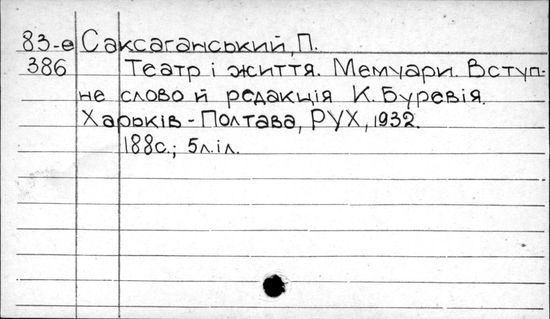 83-е Саксаганський, П.
386 Театр і життя. Мемуари. Вступ-
не слово й редакція К. Буревія.
Харьків - Полтава, РУХ, 1932.
188с.; 5л.іл.